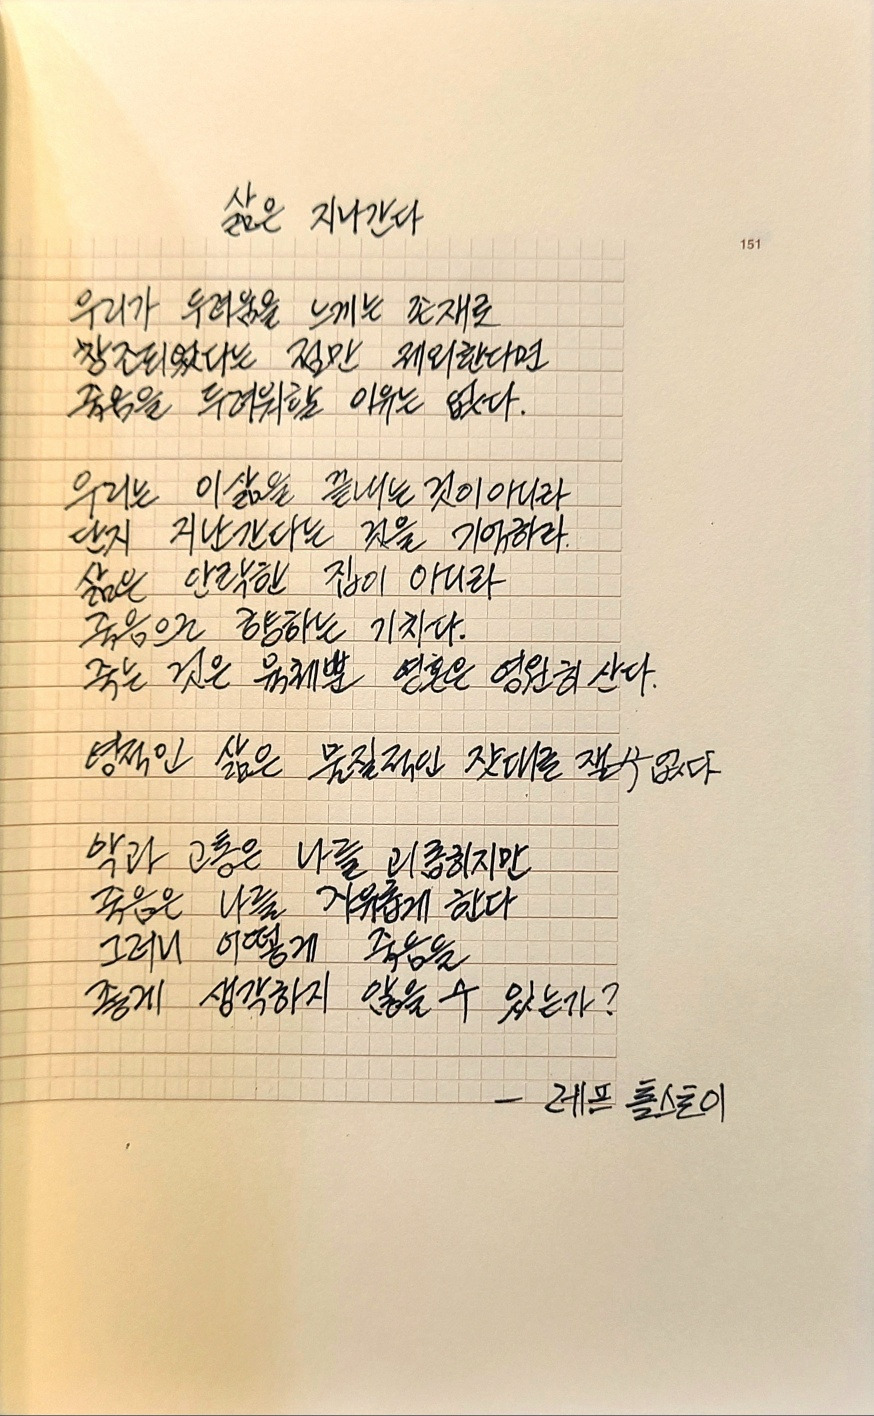 삶은 지나간다
151
우리가 두려움을 느끼는 존재로
창조되었다는 점만 제외한다면
죽음을 두려워할 이유는 없다.
우리는 이 삶을 끝내는 것이 아니라
단지 지난간다는 것을 기억하라.
삶은 안락한 집이 아니라
죽음으로 향하는 기차다.
죽는 것은 육체뿐 영혼은 영원히 산다.
영적인 삶은 물질적인 잣대로 잴 수 없다
악과 고통은 나를 괴롭히지만
죽음은 나를 자유롭게 한다
그러니 어떻게 죽음을
좋게 생각하지 않을 수 있는가?
- 레프 톨스토이